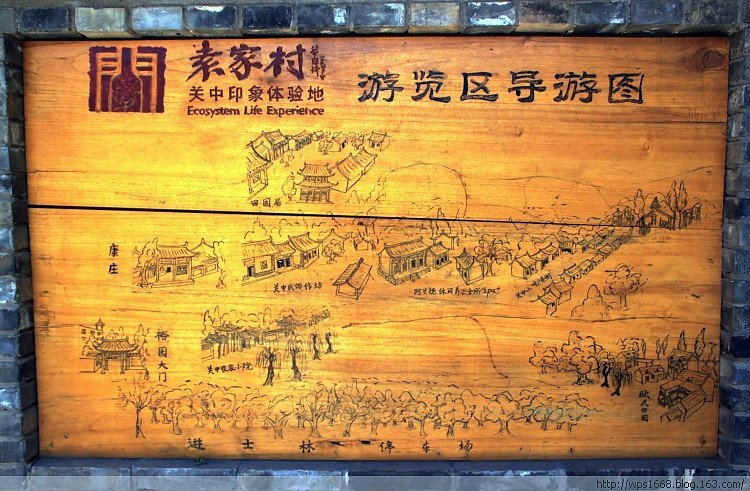 袁家村
关中印象体验地
Ecosystem Life Experience
游览区导游图
田园居
康庄
关中民俗作坊
裕园大门
关中农家小院
欧式田园
进士林停车场
http://wps1668.blog.163.com/